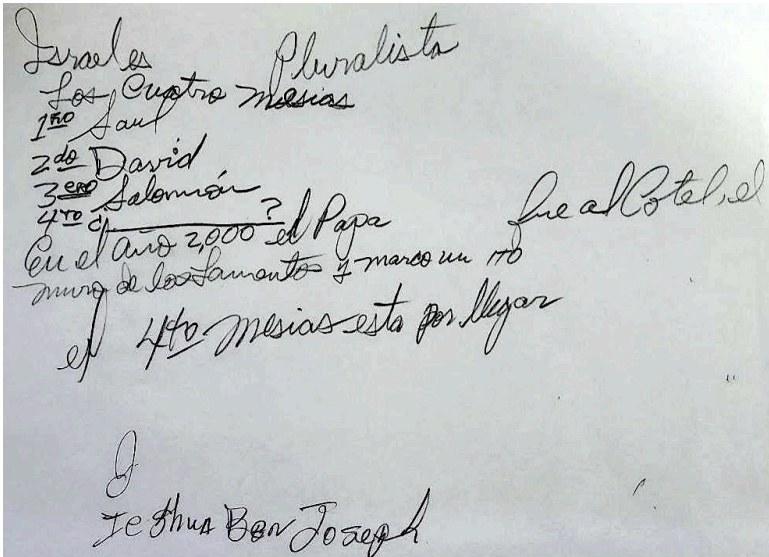 Israel es Pluralista
Los Cuatro mesias
1ro Saul
2do David
3ero Salomón
4to ¿________?
En el año 2,000 el Papa fue al Cotel, el
muro de los Lamentos y marco un ITO
el 4to mesias esta por llegar
Ieshua Ben Joseph